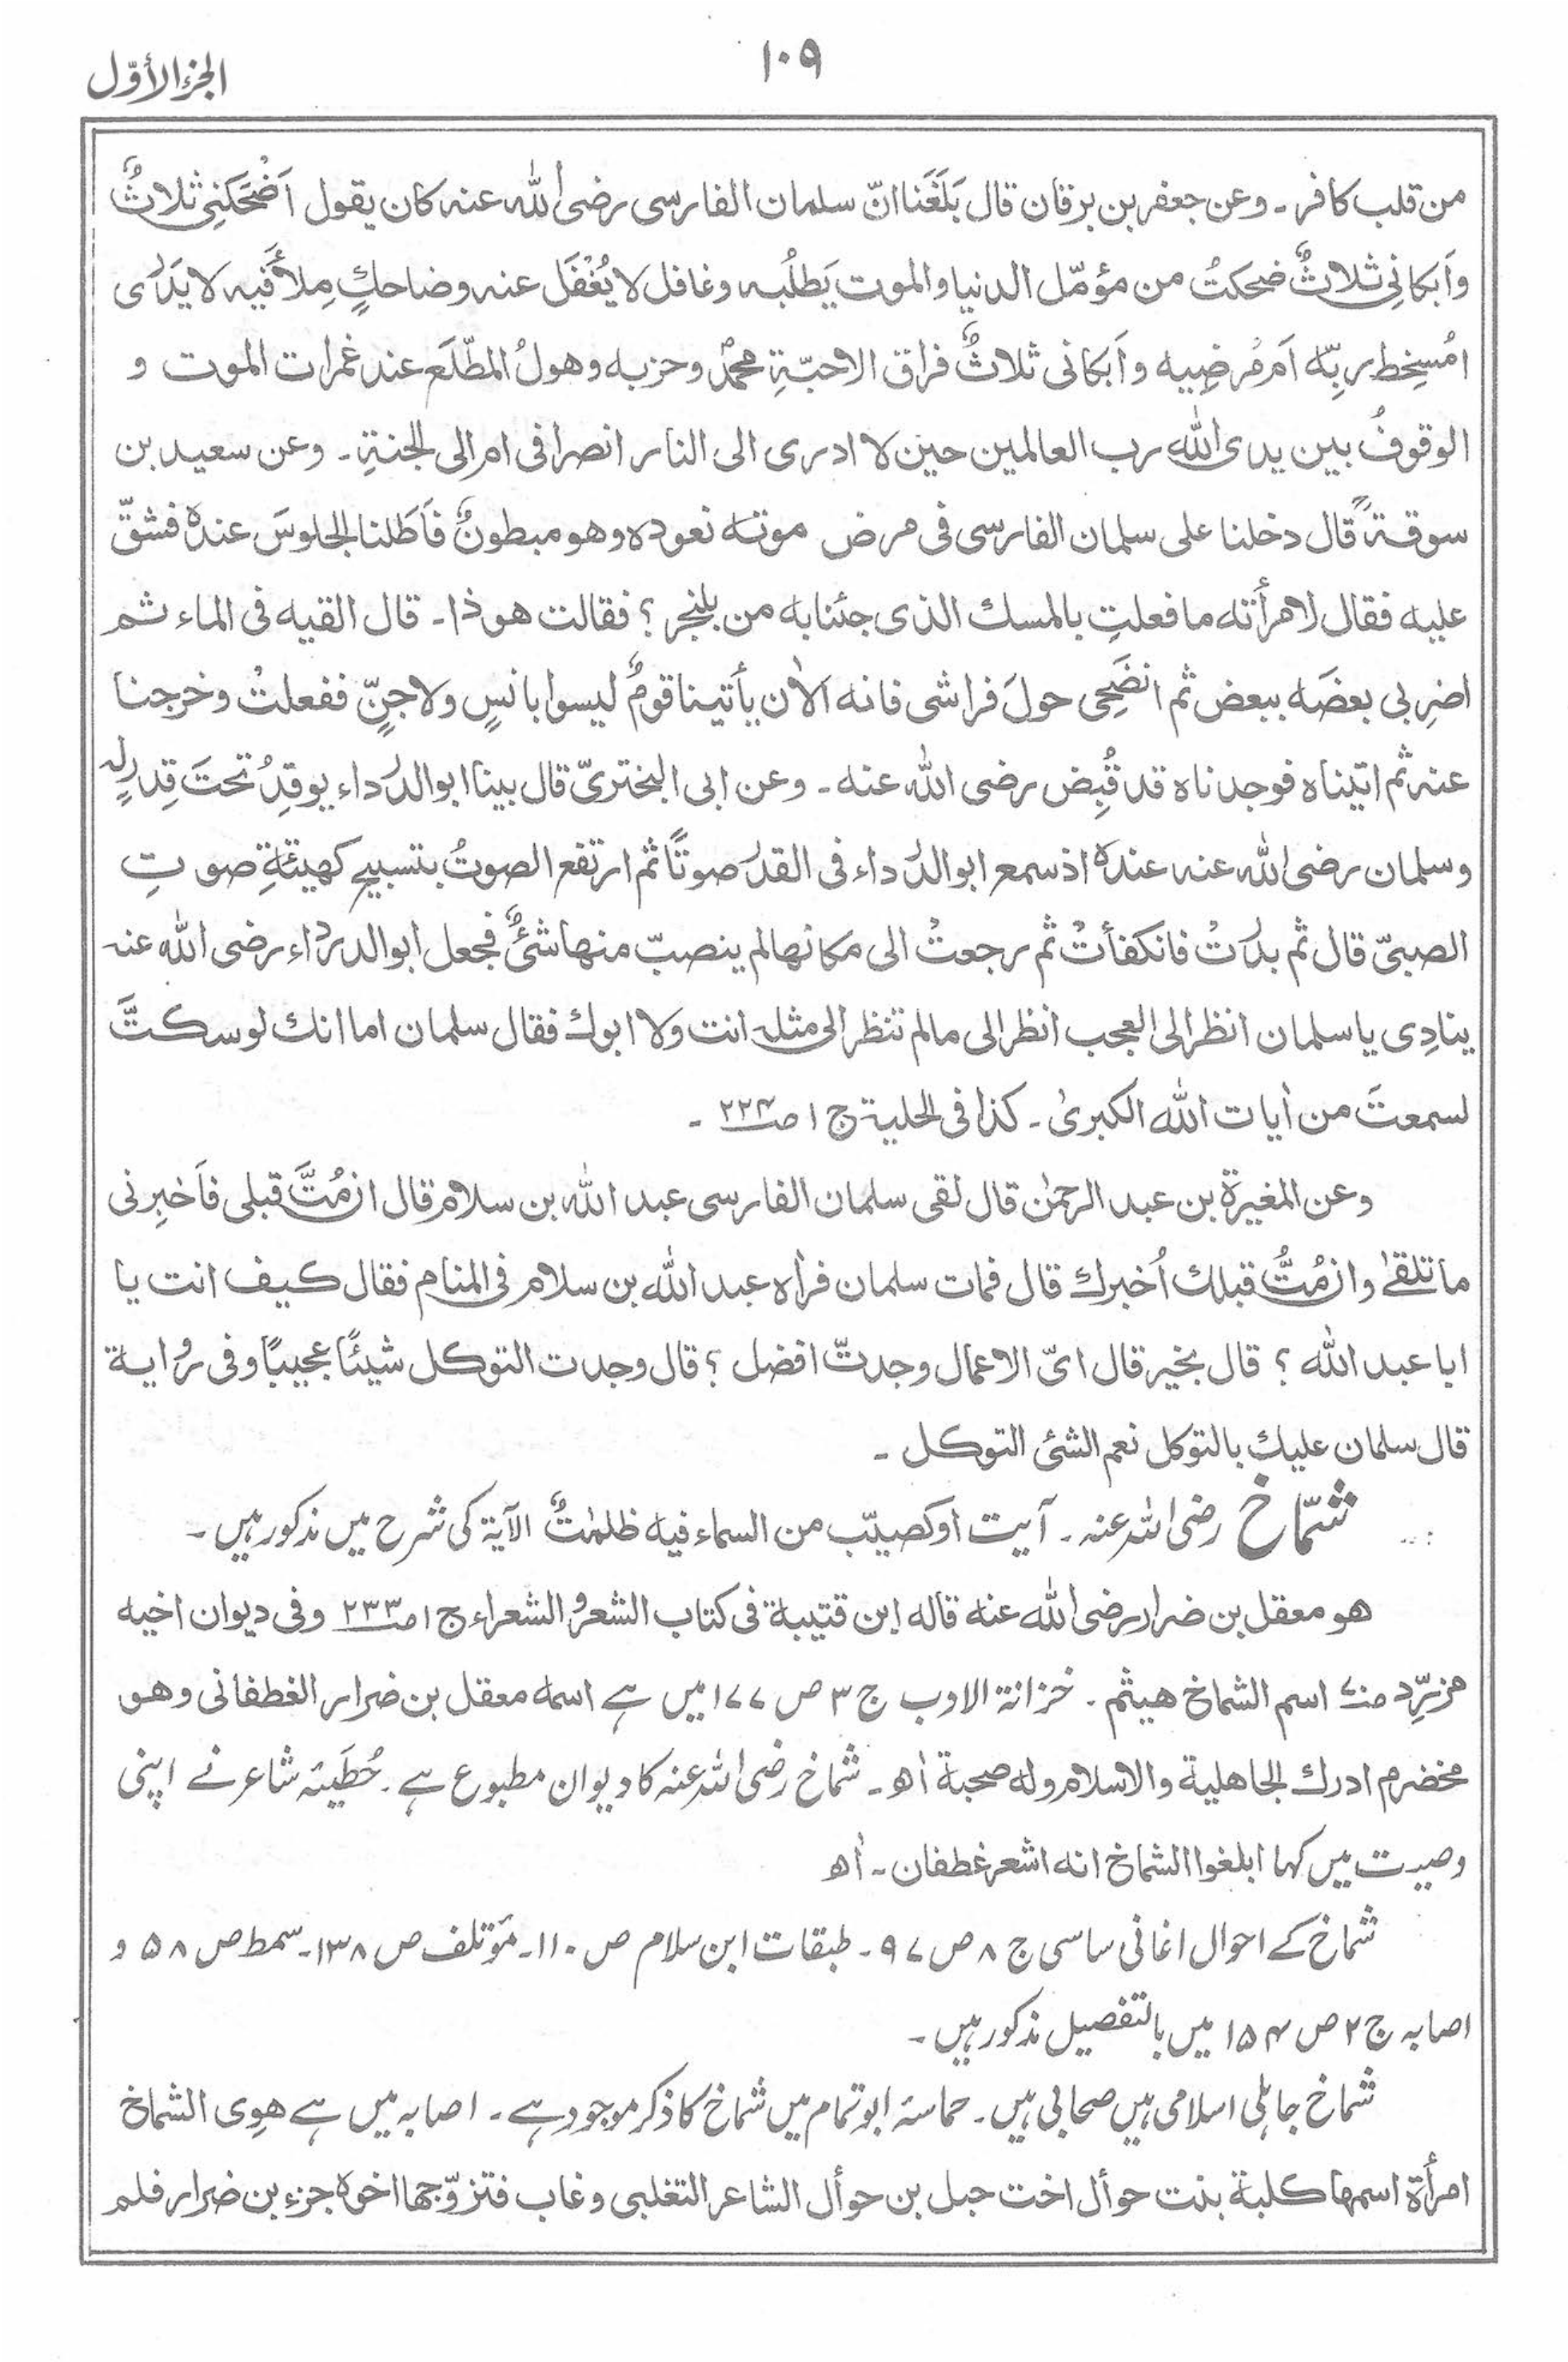 ١٠٩
الجزء الأوّل
من قلب كافر ـ وعن جعفر بن برقان قال بَلَغَنا انّ سلمان الفارسى رضى الله عنه كان يقول اَضْحَكَنِى ثلاثٌ
واَبكانِى ثلاثٌ ضحكتُ من مؤمّل الدنيا والموت يَطلُبه وغافل لا يُغْفَل عنه وضاحكٍ مِلأَ فَيه لا يَدرٰى
اَمُسخِط ربِّه اَم مُرضِيه واَبكانى ثلاثٌ فراق الاحبّةِ محمدٌ وحزبه وهولُ المطّلَع عند غمرات الموت و
الوقوفُ بين يدى الله رب العالمين حين لا ادرى الى النار انصرافى ام الى الجنةِ ـ وعن سعيد بن
سوقةً قال دخلنا على سلمان الفارسى فى مرض موته نعوده وهو مبطونٌ فاَطَلنا الجلوسَ عنده فشقّ
عليه فقال لامرأته ما فعلتِ بالمسك الذى جئنا به من بلنجر ؟ فقالت هو ذا ـ قال القيه فى الماء ثم
اضرِبى بعضَه ببعض ثم انضَحِى حولَ فراشى فانه الاٰن يأتينا قومٌ ليسوا بانسٍ ولا جنٍّ ففعلتْ وخرجنا
عنه ثم اتيناه فوجدناه قد قُبِض رضى الله عنه ـ وعن ابى البخترىّ قال بينا ابو الدرداء يوقِدُ تحتَ قِدرٍ له
وسلمان رضى الله عنه عنده اذ سمع ابو الدرداء فى القدر صوتًا ثم ارتفع الصوتُ بتسبيحٍ كهيئةِ صوتِ
الصبىّ قال ثم بدَرَتْ فانكفأتْ ثم رجعتْ الى مكانها لم ينصبّ منها شئٌ فجعل ابو الدرداء رضى الله عنه
ينادِى يا سلمان انظر الى العجب انظر الى مالم تنظر الى مثله انت ولا ابوك فقال سلمان اما انك لو سكتَّ
لسمعتَ من اٰيات الله الكبرىٰ ـ كذا فى الحلية ج ١ ص ٢٢٤ ـ
وعن المغيرة بن عبد الرحمٰن قال لقى سلمان الفارسى عبد الله بن سلام قال ان مُتَّ قبلى فاَخبِرنى
ما تلقىٰ وان مُتُّ قبلك اُخبرك قال فمات سلمان فراٰه عبد الله بن سلام فى المنام فقال كيف انت يا
ابا عبد الله ؟ قال بخير قال اىّ الاعمال وجدتَّ افضل ؟ قال وجدت التوكل شيئًا عجيبًا وفى رواية
قال سلمان عليك بالتوكل نعم الشئ التوكل ـ
شمّاخ رضی اللہ عنہ ۔ آیت اوکصیّب من السماء فیه ظلمٰتٌ الآیة کی شرح میں مذکور ہیں ۔
هو معقل بن ضرار رضى الله عنه قاله ابن قتيبة فى كتاب الشعر و الشعراء ج ١ ص ٢٣٣ وفى ديوان اخيه
مزرِّد ص اسم الشماخ هيثم ۔ خزانۃ الادب ج ۳ ص ۱۷۷ میں ہے اسمه معقل بن ضرار الغطفانى وهو
مخضرم ادرك الجاهلية والاسلام وله صحبة اه ۔ شماخ رضی اللہ عنہ کا دیوان مطبوع ہے ۔ حُطَیئہ شاعر نے اپنی
وصیت میں کہا ابلغوا الشماخ انه اشعر غطفان ـ اه
شماخ کے احوال اغانی ساسی ج ۸ ص ۹۷ ۔ طبقات ابن سلام ص ۱۱۰ ۔ مؤتلف ص ۱۳۸ ۔ سمط ص ۵۸ و
اصابہ ج ۲ ص ۱۵۴ میں بالتفصیل مذکور ہیں ۔
شماخ جاہلی اسلامی ہیں صحابی ہیں ۔ حماسہ ابو تمام میں شماخ کا ذکر موجود ہے ۔ اصابہ میں ہے هوِى الشماخ
امرأة اسمها كلبة بنت حوأل اخت جبل بن حوأل الشاعر التغلبى وغاب فتزوّجها اخوه جزء بن ضرار فلم